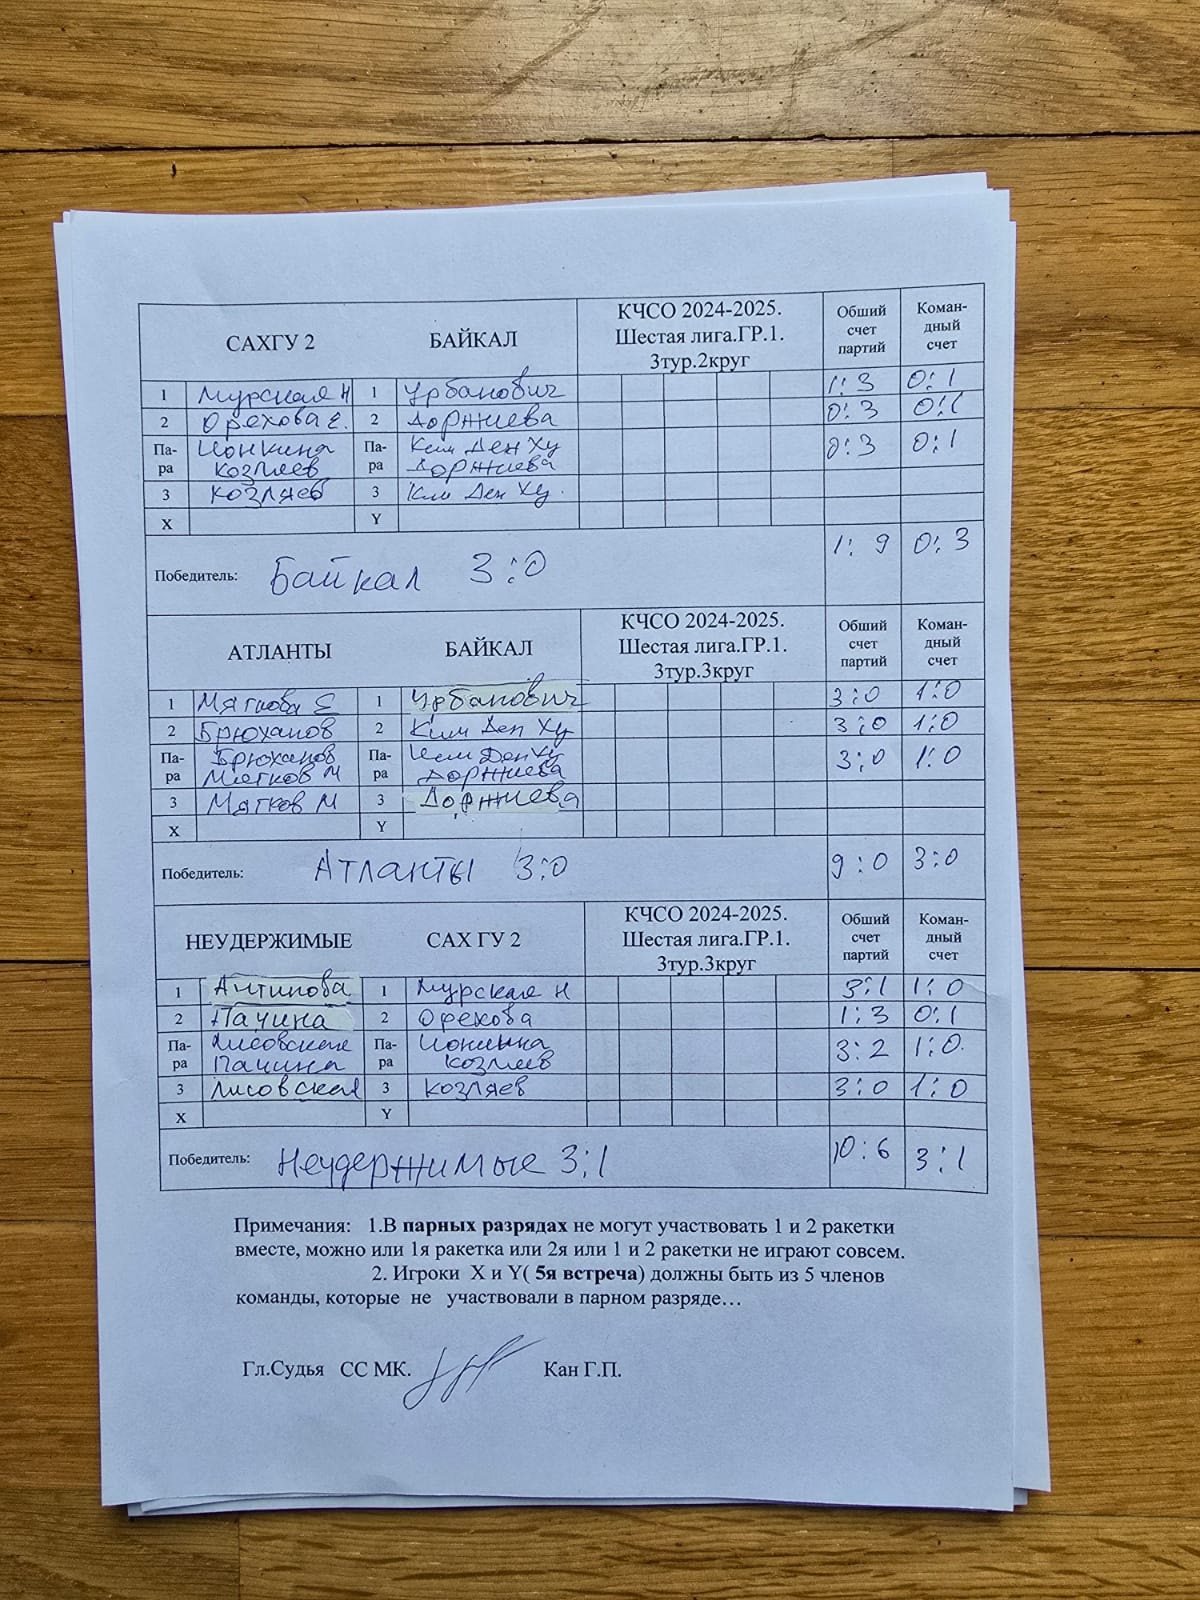 САХГУ 2 БАЙКАЛ КЧСО 2024-2025. Шестая лига.ГР.1. 3тур.2круг Обший счет партий Коман-дный счет
1 Мурская Н 1 Урбанович 1:3 0:1
2 Орехова Е. 2 Доржиева 0:3 0:1
Па-ра Ионкина Козляев Па-ра Ким Ден Ху Доржиева 0:3 0:1
3 Козляев 3 Ким Ден Ху.
X Y
Победитель: Байкал 3:0 1:9 0:3
АТЛАНТЫ БАЙКАЛ КЧСО 2024-2025. Шестая лига.ГР.1. 3тур.3круг Обший счет партий Коман-дный счет
1 Мягкова Е 1 Урбанович 3:0 1:0
2 Брюханов 2 Ким Ден Ху 3:0 1:0
Па-ра Брюханов Мягков М Па-ра Ким Ден Ху Доржиева 3:0 1:0
3 Мягков М 3 Доржиева
X Y
Победитель: Атланты 3:0 9:0 3:0
НЕУДЕРЖИМЫЕ САХ ГУ 2 КЧСО 2024-2025. Шестая лига.ГР.1. 3тур.3круг Обший счет партий Коман-дный счет
1 Антипова 1 Мурская Н 3:1 1:0
2 Пачина 2 Орехова 1:3 0:1
Па-ра Лисовская Пачина Па-ра Ионкина Козляев 3:2 1:0.
3 Лисовская 3 Козляев 3:0 1:0
X Y
Победитель: Неудержимые 3:1 10:6 3:1
Примечания: 1.В парных разрядах не могут участвовать 1 и 2 ракетки
вместе, можно или 1я ракетка или 2я или 1 и 2 ракетки не играют совсем.
2. Игроки X и Y( 5я встреча) должны быть из 5 членов
команды, которые не участвовали в парном разряде…
Гл.Судья СС МК. Кан Г.П.